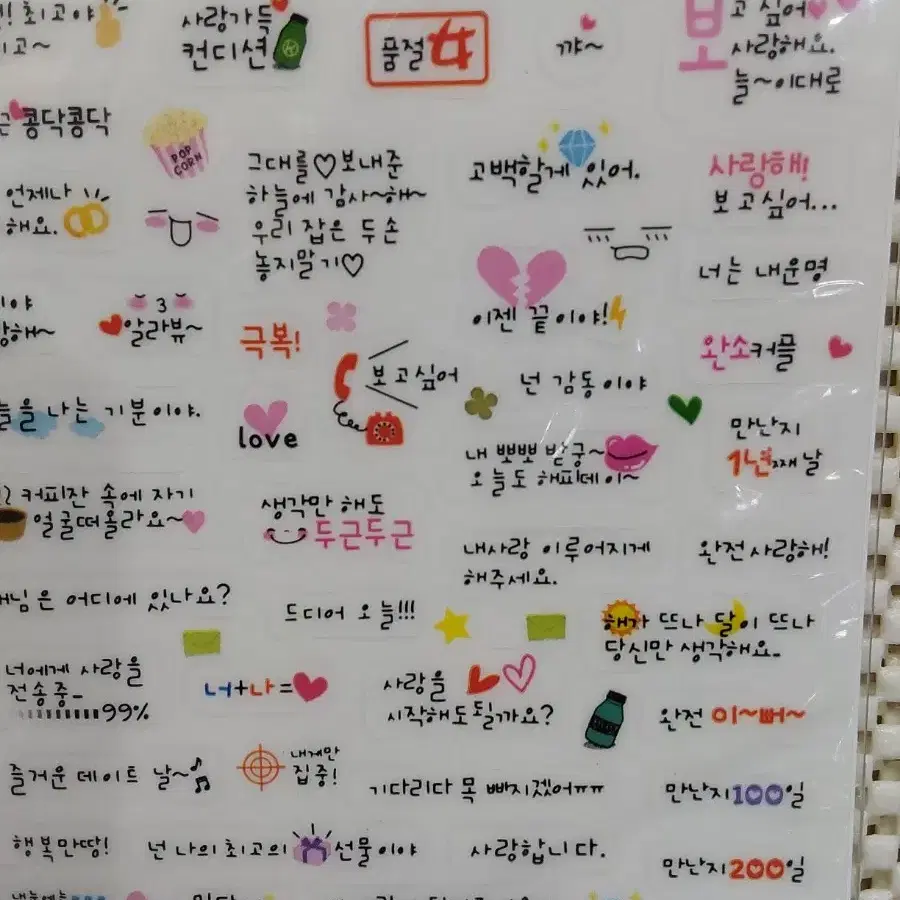 ! 최고야
고~
사랑가득
컨디션
품절女
꺄~
보고 싶어
사랑해요.
늘~이대로
콩닥콩닥
POP
CORN
언제나
해요.
그대를♡보내준
하늘에 감사~해~
우리 잡은 두 손
놓지말기♡
고백할게 있어.
사랑해!
보고싶어...
너는 내운명
이야
해~
3
알라뷰~
극복!
보고싶어
이젠 끝이야!
완소커플
넌 감동이야
을 나는 기분이야.
love
내 뽀뽀 받궁~
오늘도 해피데이~
만난지
1년째날
커피잔 속에 자기
얼굴떠올라요~
생각만 해도
두근두근
내사랑 이루어지게
해주세요.
완전사랑해!
님은 어디에 있나요?
드디어 오늘!!!
해가 뜨나 달이 뜨나
당신만 생각해요.
너에게 사랑을
전송중
99%
너+나=
사랑을
시작해도될까요?
완전 이~뻐~
즐거운 데이트 날~
내게만
집중!
기다리다 목 빠지겠어ㅠㅠ
만난지100일
행복만땅!
넌 나의 최고의 선물이야
사랑합니다.
만난지200일